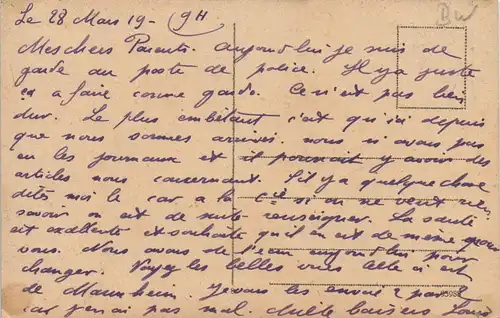 Le 28 Mars 19- 9H
BW
Mes chers Parents. aujourd'hui je suis de
garde au poste de police. Il y a juste
ça a faire comme garde. Ce n'est pas bien
dur. Le plus embêtant c'est qu'ici depuis
que nous sommes arrivés nous n'avons pas
eu les journaux et il pourrait y avoir des
articles nous concernant. S'il y a quelque chose
dites moi le car a la Cie si on ne veut rien
savoir on est de suite renseigner. La santé
est excellente et souhaite qu'il en est de même pour
vous. Nous avons de l'eau aujourd'hui pour
changer. Voyez les belles vues elle a est
de Mannheim. Je vous les envoie 2 par 2
car j'en ai pas mal. Mille baisers Louis